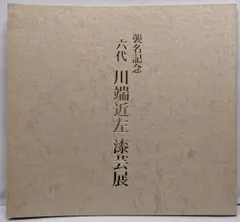 襲名記念
六代 川端近左 漆芸展